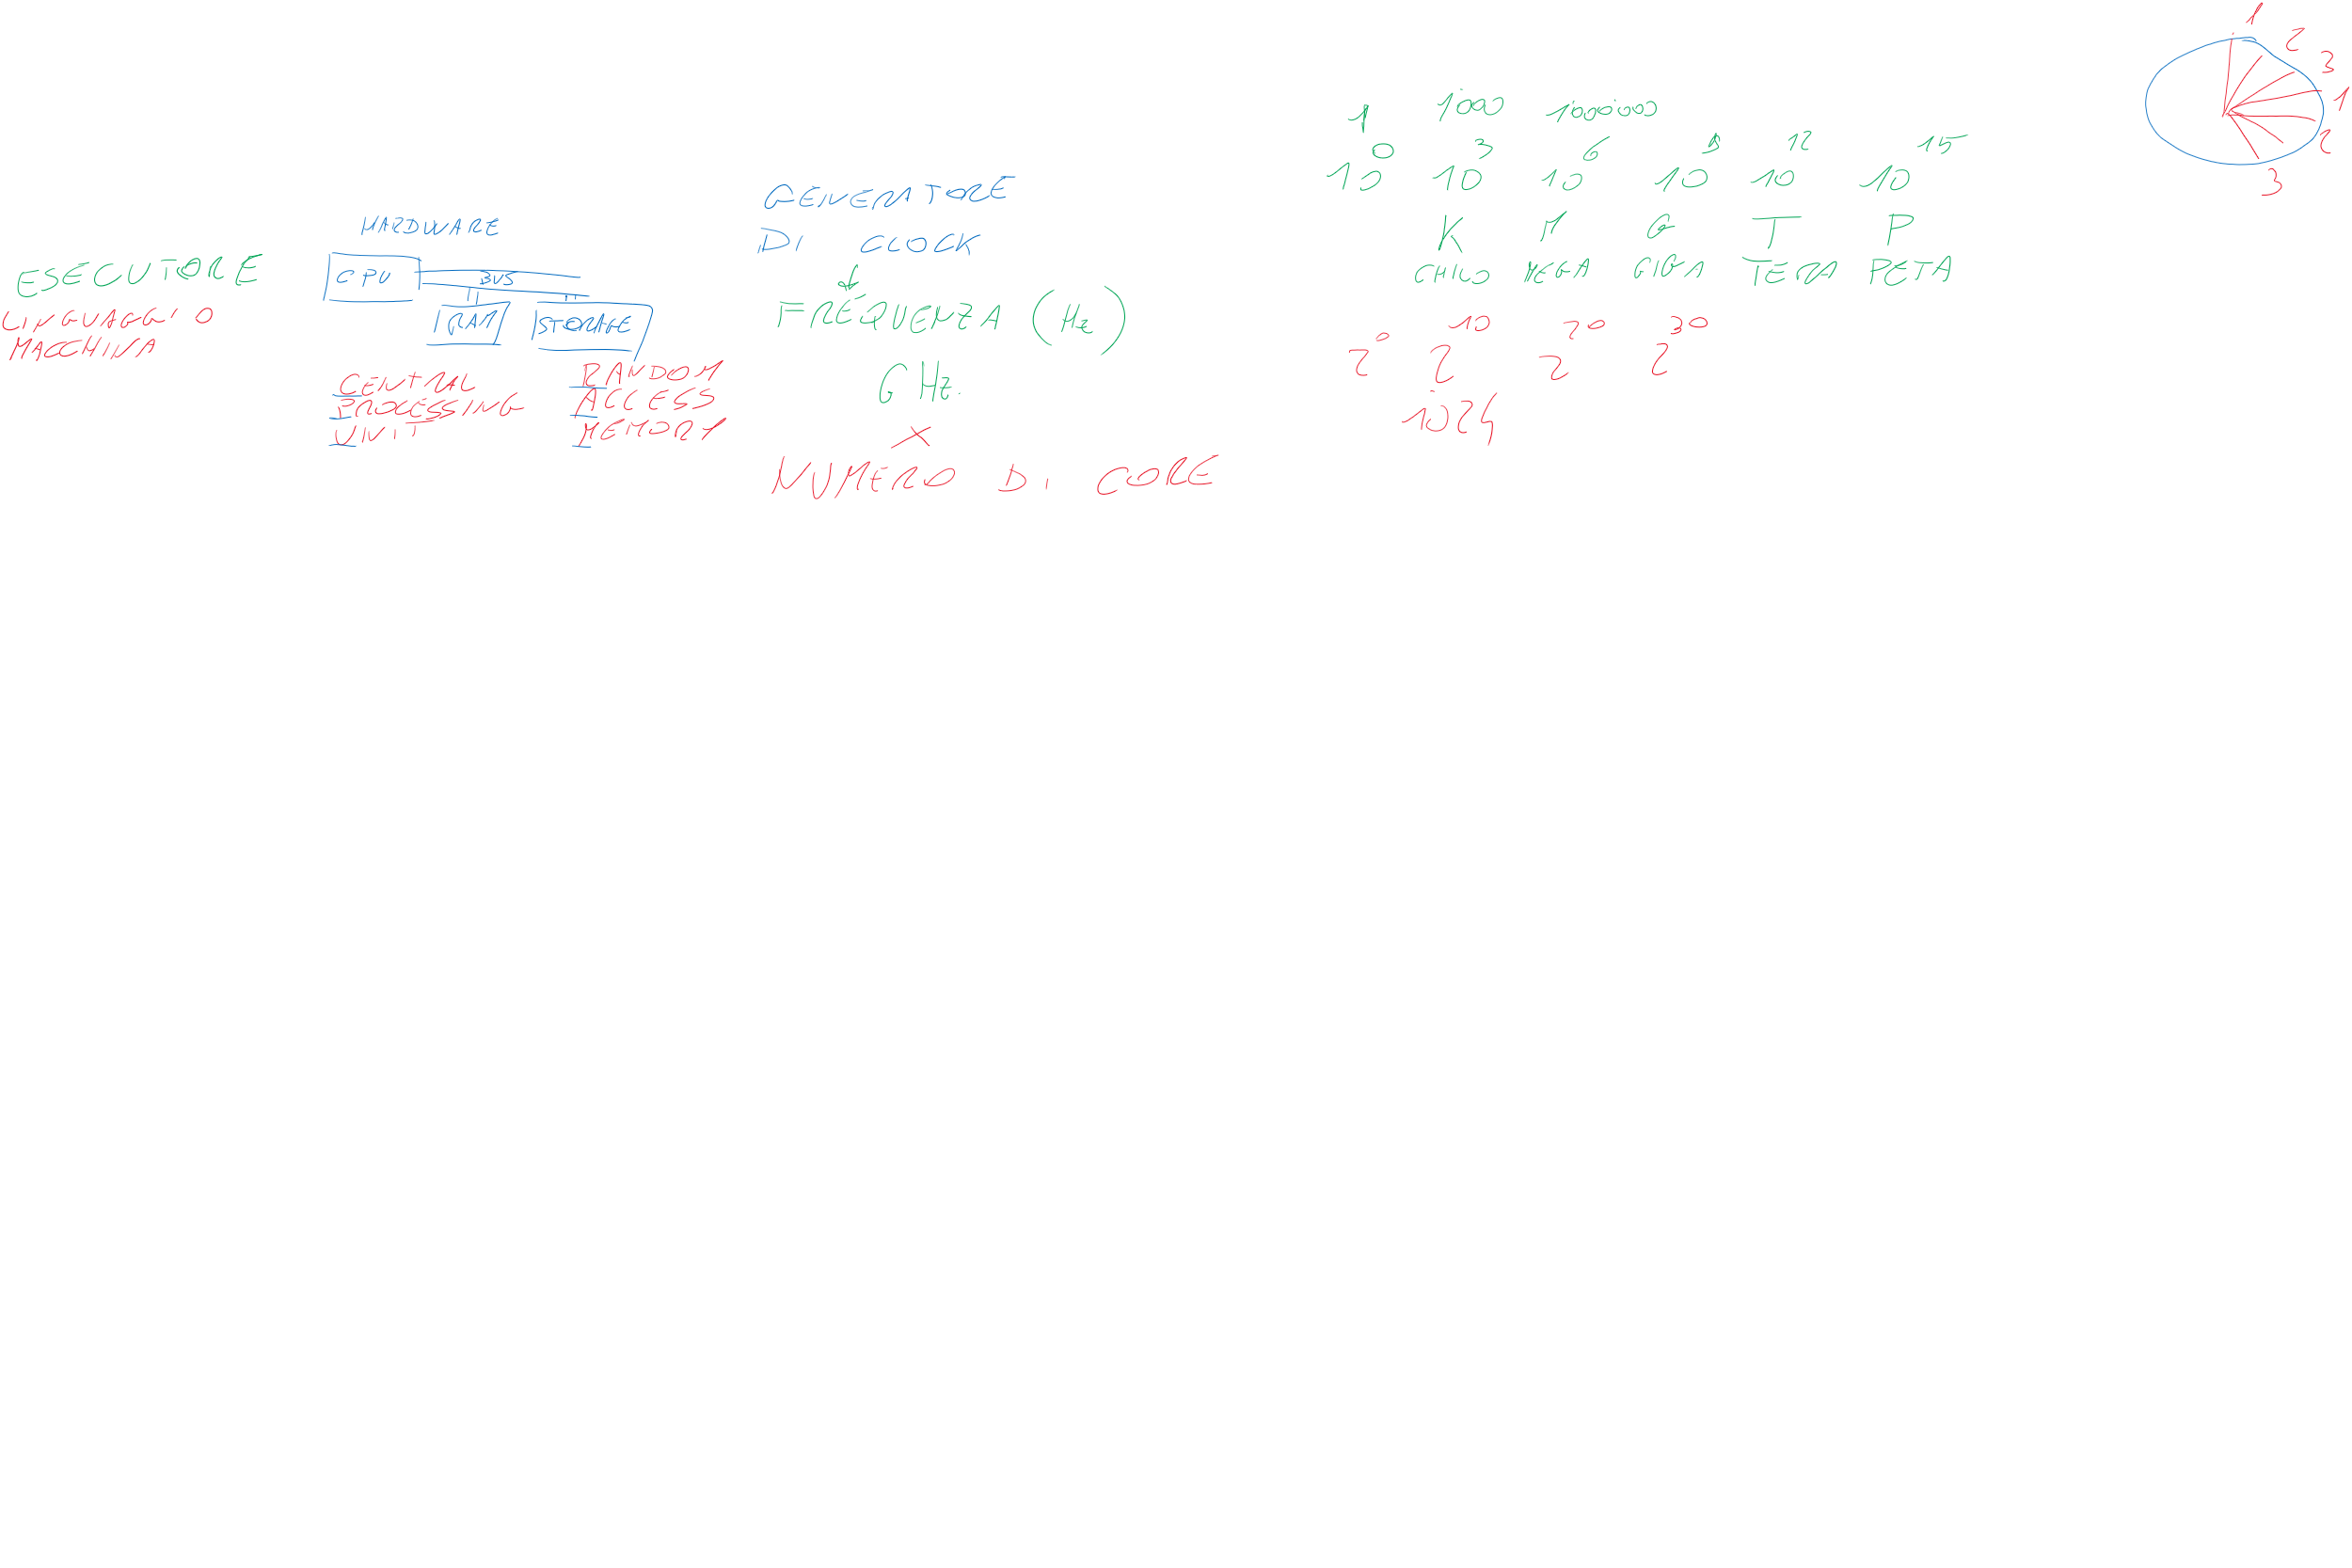 ESECUTORE
LINGUAGGIO
MACCHINA
HARDWARE
CPU
BUS
RAM
STORAGE
CENTRAL
PROCESSING
UNIT
RANDOM
ACCESS
MEMORY
GENERATORE
DI CLOCK
FREQUENZA (Hz)
GHz.
X
NUMERO DI CORE
1 1000 1000000
10^0 10^3 10^6 10^9 10^12 10^15
K M G T P
CHILO MEGA GIGA TERA PETA
2^0 2^10 2^20 2^30
1024
1
2
3
1
2
3